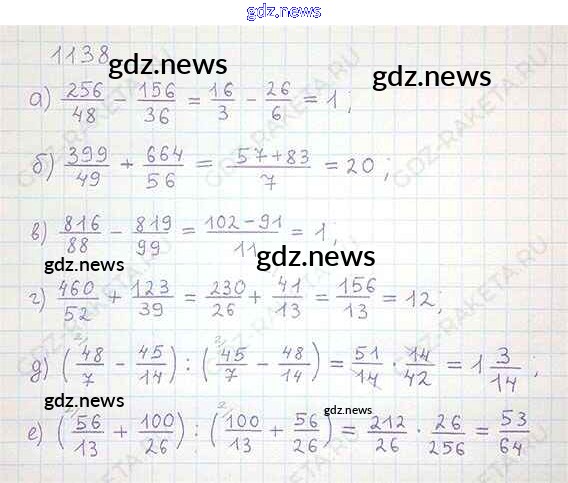 gdz.news
1138 gdz.news
а) 256/48 − 156/36 = 16/3 − 26/6 = 1; gdz.news
б) 399/49 + 664/56 = (57+83)/7 = 20;
в) 816/88 − 819/99 = (102−91)/11 = 1;
gdz.news gdz.news
г) 460/52 + 123/39 = 230/26 + 41/13 = 156/13 = 12;
gdz.news
д) (²⁾48/7 − 45/14) : (²⁾45/7 − 48/14) = 51/14 · 14/42 = 1 3/14;
gdz.news
е) (²⁾56/13 + 100/26) : (²⁾100/13 + 56/26) = 212/26 · 26/256 = 53/64
GDZ-RAKETA.RU